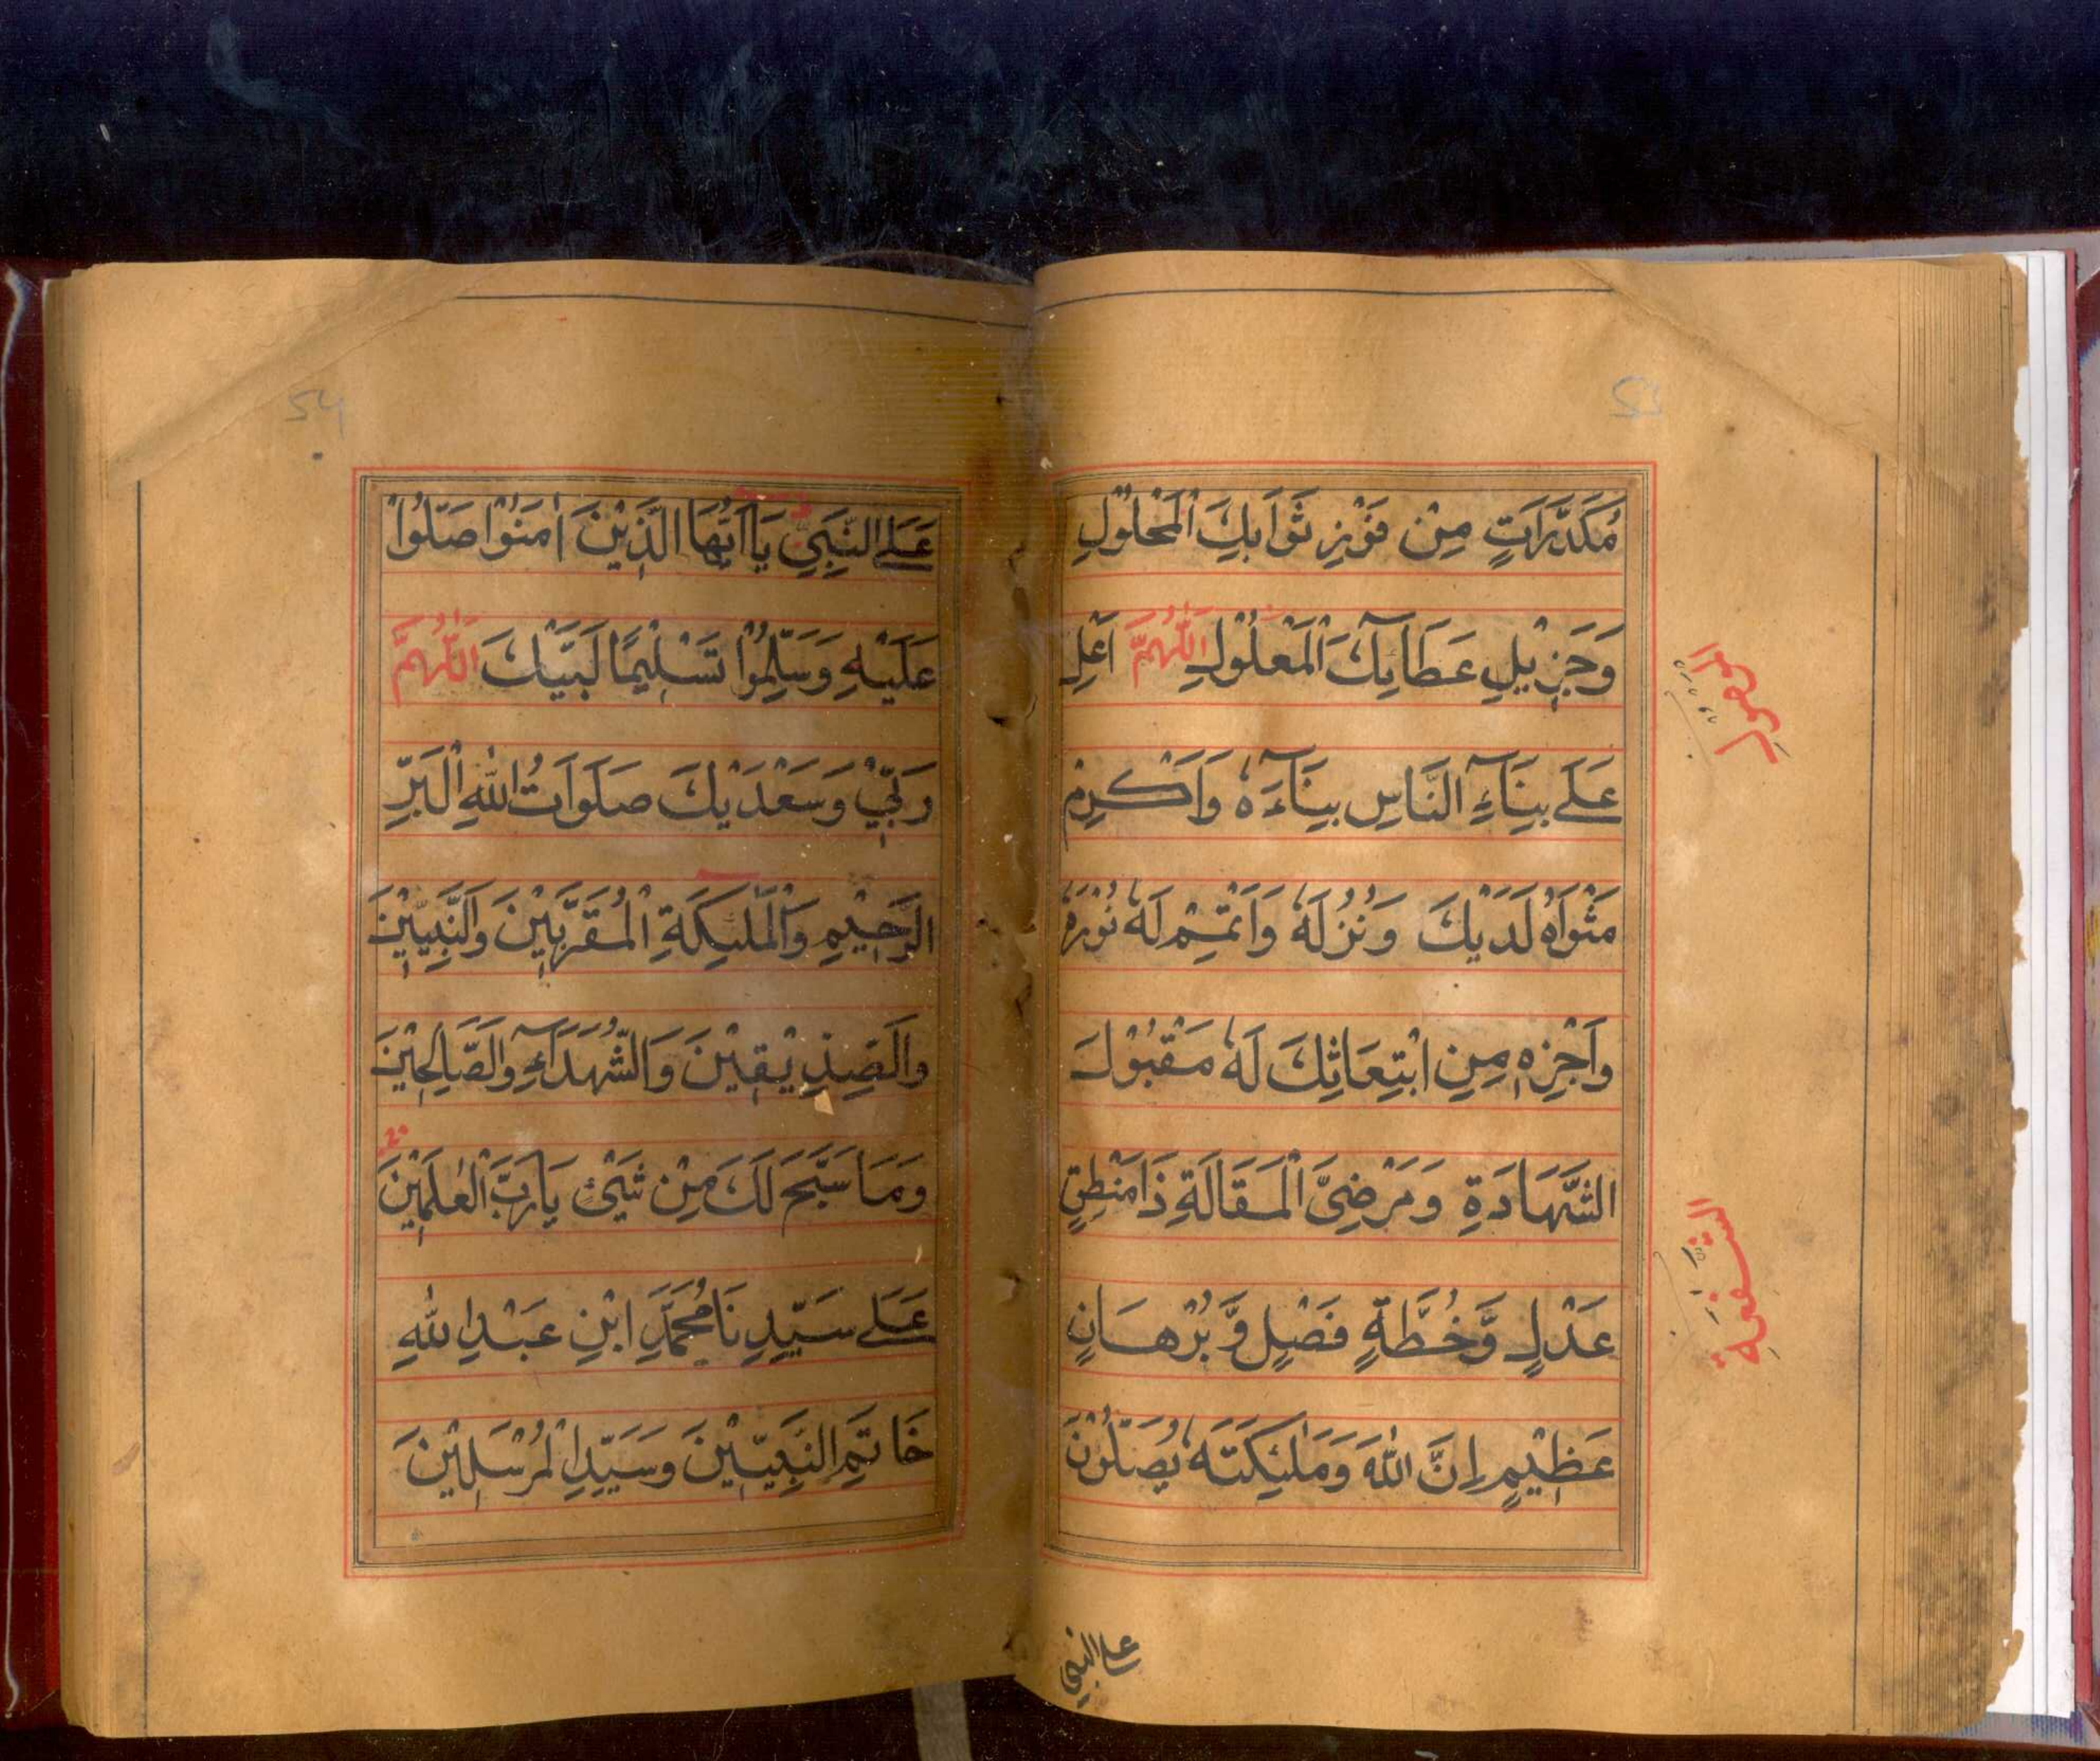 مُكَدَّرَاتٍ مِنْ فَوْزِ ثَوَابِكَ الْمَحْلُوْلِ
وَجَزِيْلِ عَطَائِكَ الْمَعْلُوْلِ اَللّٰهُمَّ اَعْلِ
عَلَى بِنَاءِ النَّاسِ بِنَاءَهٗ وَاَكْرِمْ
مَثْوَاهُ لَدَيْكَ وَنُزُلَهٗ وَاَتْمِمْ لَهٗ نُوْرَهٗ
وَاَجْزِهٖ مِنِ ابْتِعَاثِكَ لَهٗ مَقْبُوْلَ
الشَّهَادَةِ وَمَرْضِىَّ الْمَقَالَةِ ذَا مَنْطِقٍ
عَدْلٍ وَّخُطَّةٍ فَصْلٍ وَّ بُرْهَانٍ
عَظِيْمٍ اِنَّ اللّٰهَ وَمَلٰئِكَتَهٗ يُصَلُّوْنَ
على النبي
عَلَى النَّبِيِّ يَا اَيُّهَا الَّذِيْنَ اٰمَنُوْا صَلُّوْا
عَلَيْهِ وَسَلِّمُوْا تَسْلِيْمًا لَبَّيْكَ اَللّٰهُمَّ
رَبِّيْ وَسَعْدَيْكَ صَلَوَاتُ اللّٰهِ الْبَرِّ
الرَّحِيْمِ وَالْمَلٰئِكَةِ الْمُقَرَّبِيْنَ وَالنَّبِيِّيْنَ
وَالصِّدِّيْقِيْنَ وَالشُّهَدَاءِ وَالصَّالِحِيْنَ
وَمَا سَبَّحَ لَكَ مِنْ شَيْءٍ يَا رَبَّ الْعٰلَمِيْنَ
عَلَى سَيِّدِنَا مُحَمَّدِ ابْنِ عَبْدِ اللّٰهِ
خَاتَمِ النَّبِيِّيْنَ وَسَيِّدِ الْمُرْسَلِيْنَ